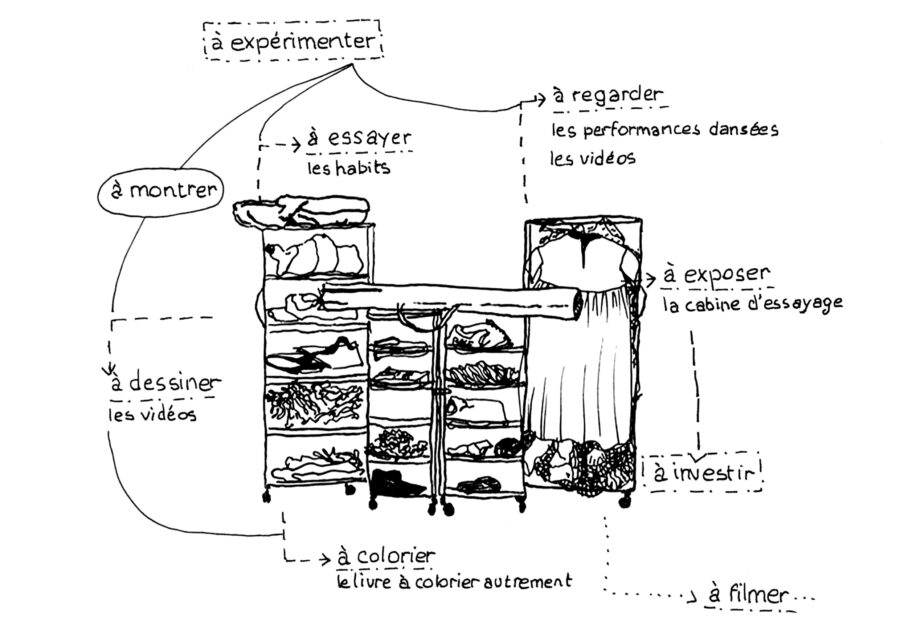 à expérimenter
à regarder
les performances dansées
les vidéos
à essayer
les habits
à montrer
à exposer
la cabine d'essayage
à dessiner
les vidéos
à investir
à colorier
le livre à colorier autrement
à filmer...